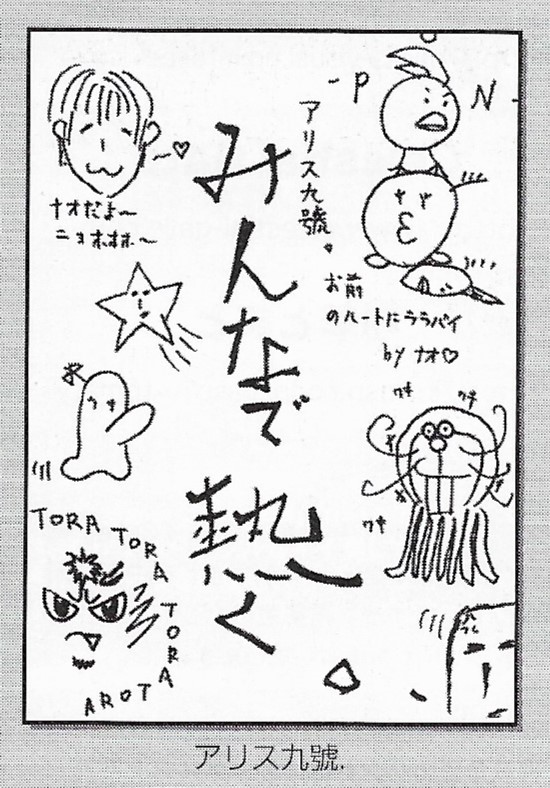 みんなで
熱く
アリス九號.
お前
のハートにララバイ
by ナオ♡
ナオだよ〜
ニョホホホ〜
P
N
ウキ
ウキ
ウキ
TORA TORA TORA AROT
アリス九號.